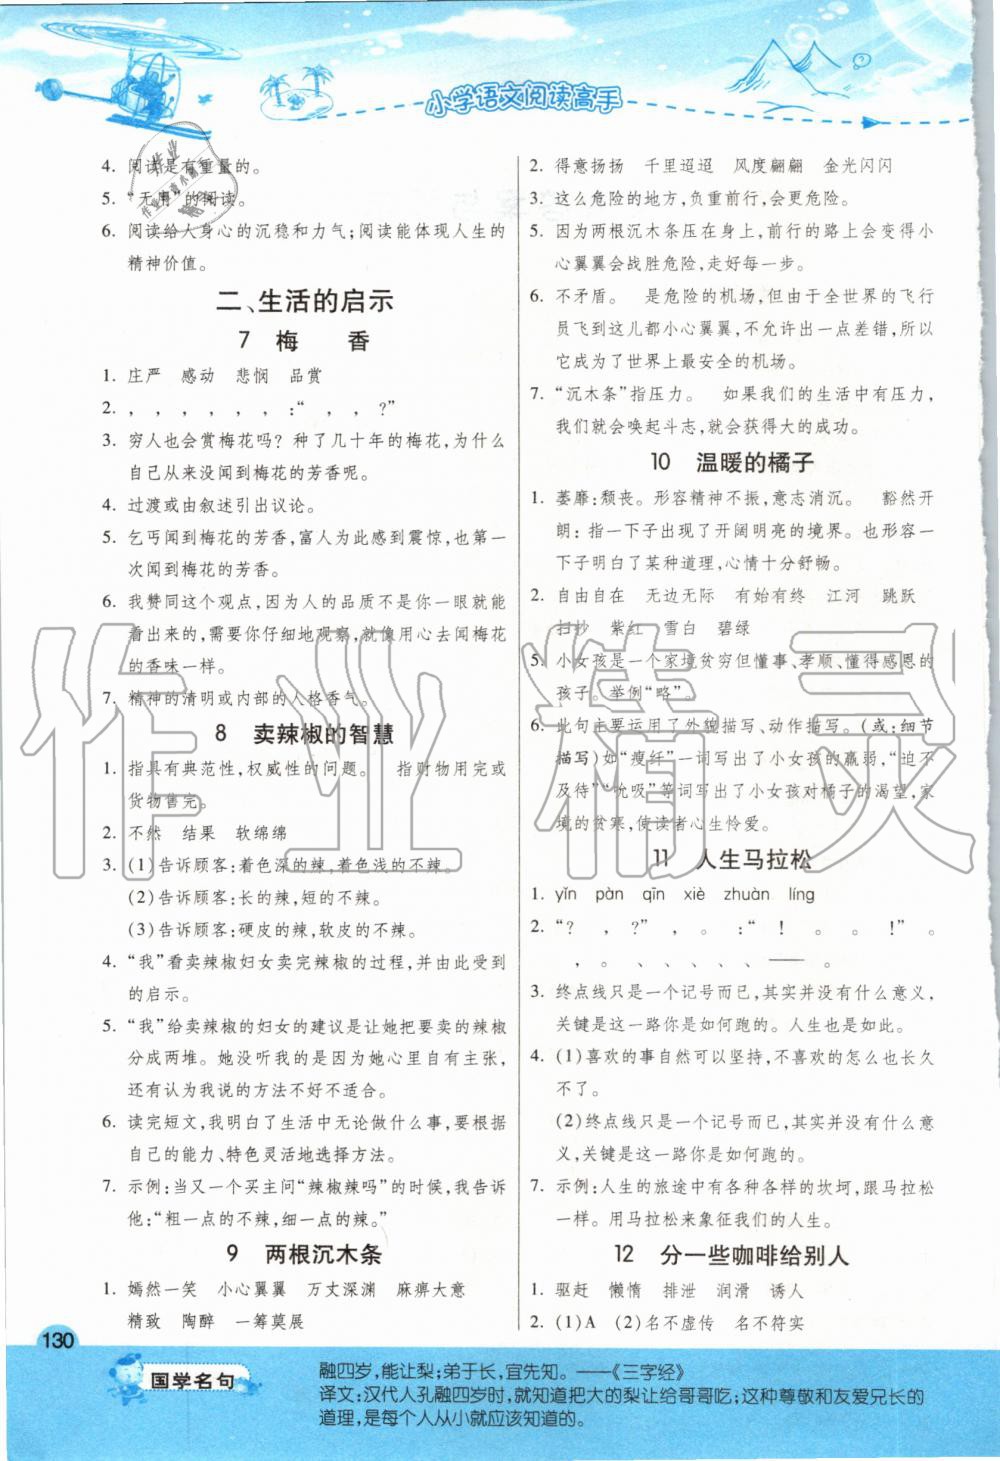 小学语文阅读高手
4. 阅读是有重量的。
5. “无用”的阅读。
6. 阅读给人身心的沉稳和力气;阅读能体现人生的
精神价值。
二、生活的启示
7 梅 香
1. 庄严 感动 悲悯 品赏
2. , , , , , , :“ , , ?”
3. 穷人也会赏梅花吗? 种了几十年的梅花,为什么
自己从来没闻到梅花的芳香呢。
4. 过渡或由叙述引出议论。
5. 乞丐闻到梅花的芳香,富人为此感到震惊,也第一
次闻到梅花的芳香。
6. 我赞同这个观点,因为人的品质不是你一眼就能
看出来的,需要你仔细地观察,就像用心去闻梅花
的香味一样。
7. 精神的清明或内部的人格香气。
8 卖辣椒的智慧
1. 指具有典范性,权威性的问题。 指财物用完或
货物售完。
2. 不然 结果 软绵绵
3. (1)告诉顾客:着色深的辣,着色浅的不辣。
(2)告诉顾客:长的辣,短的不辣。
(3)告诉顾客:硬皮的辣,软皮的不辣。
4. “我”看卖辣椒妇女卖完辣椒的过程,并由此受到
的启示。
5. “我”给卖辣椒的妇女的建议是让她把要卖的辣椒
分成两堆。她没听我的是因为她心里自有主张,
还有认为我说的方法不好不适合。
6. 读完短文,我明白了生活中无论做什么事,要根据
自己的能力、特色灵活地选择方法。
7. 示例:当又一个买主问“辣椒辣吗”的时候,我告诉
他:“粗一点的不辣,细一点的辣。”
9 两根沉木条
1. 嫣然一笑 小心翼翼 万丈深渊 麻痹大意
精致 陶醉 一筹莫展
2. 得意扬扬 千里迢迢 风度翩翩 金光闪闪
3. 这么危险的地方,负重前行,会更危险。
5. 因为两根沉木条压在身上,前行的路上会变得小
心翼翼会战胜危险,走好每一步。
6. 不矛盾。 是危险的机场,但由于全世界的飞行
员飞到这儿都小心翼翼,不允许出一点差错,所以
它成为了世界上最安全的机场。
7. “沉木条”指压力。 如果我们的生活中有压力,
我们就会唤起斗志,就会获得大的成功。
10 温暖的橘子
1. 萎靡:颓丧。形容精神不振,意志消沉。 豁然开
朗:指一下子出现了开阔明亮的境界。也形容一
下子明白了某种道理,心情十分舒畅。
2. 自由自在 无边无际 有始有终 江河 跳跃
扫抄 紫红 雪白 碧绿
5. 小女孩是一个家境贫穷但懂事、孝顺、懂得感恩的
孩子。举例“略”。
6. 此句主要运用了外貌描写、动作描写。(或:细节
描写)如“瘦纤”一词写出了小女孩的羸弱,“迫不
及待”“吮吸”等词写出了小女孩对橘子的渴望,家
境的贫寒,使读者心生怜爱。
11 人生马拉松
1. yǐn pàn qīn xiè zhuàn líng
2. “? , ?” , 。 :“ ! 。 。 !” 。
, 。 、 、 、 、 、 ——
3. 终点线只是一个记号而已,其实并没有什么意义,
关键是这一路你是如何跑的。人生也是如此。
4. (1)喜欢的事自然可以坚持,不喜欢的怎么也长久
不了。
(2)终点线只是一个记号而已,其实并没有什么意
义,关键是这一路你是如何跑的。
7. 示例:人生的旅途中有各种各样的坎坷,跟马拉松
一样。用马拉松来象征我们的人生。
12 分一些咖啡给别人
1. 驱赶 懒惰 排泄 润滑 诱人
2. (1)A (2)名不虚传 名不符实
130
国学名句
融四岁,能让梨;弟于长,宜先知。——《三字经》
译文:汉代人孔融四岁时,就知道把大的梨让给哥哥吃;这种尊敬和友爱兄长的
道理,是每个人从小就应该知道的。
作业精灵